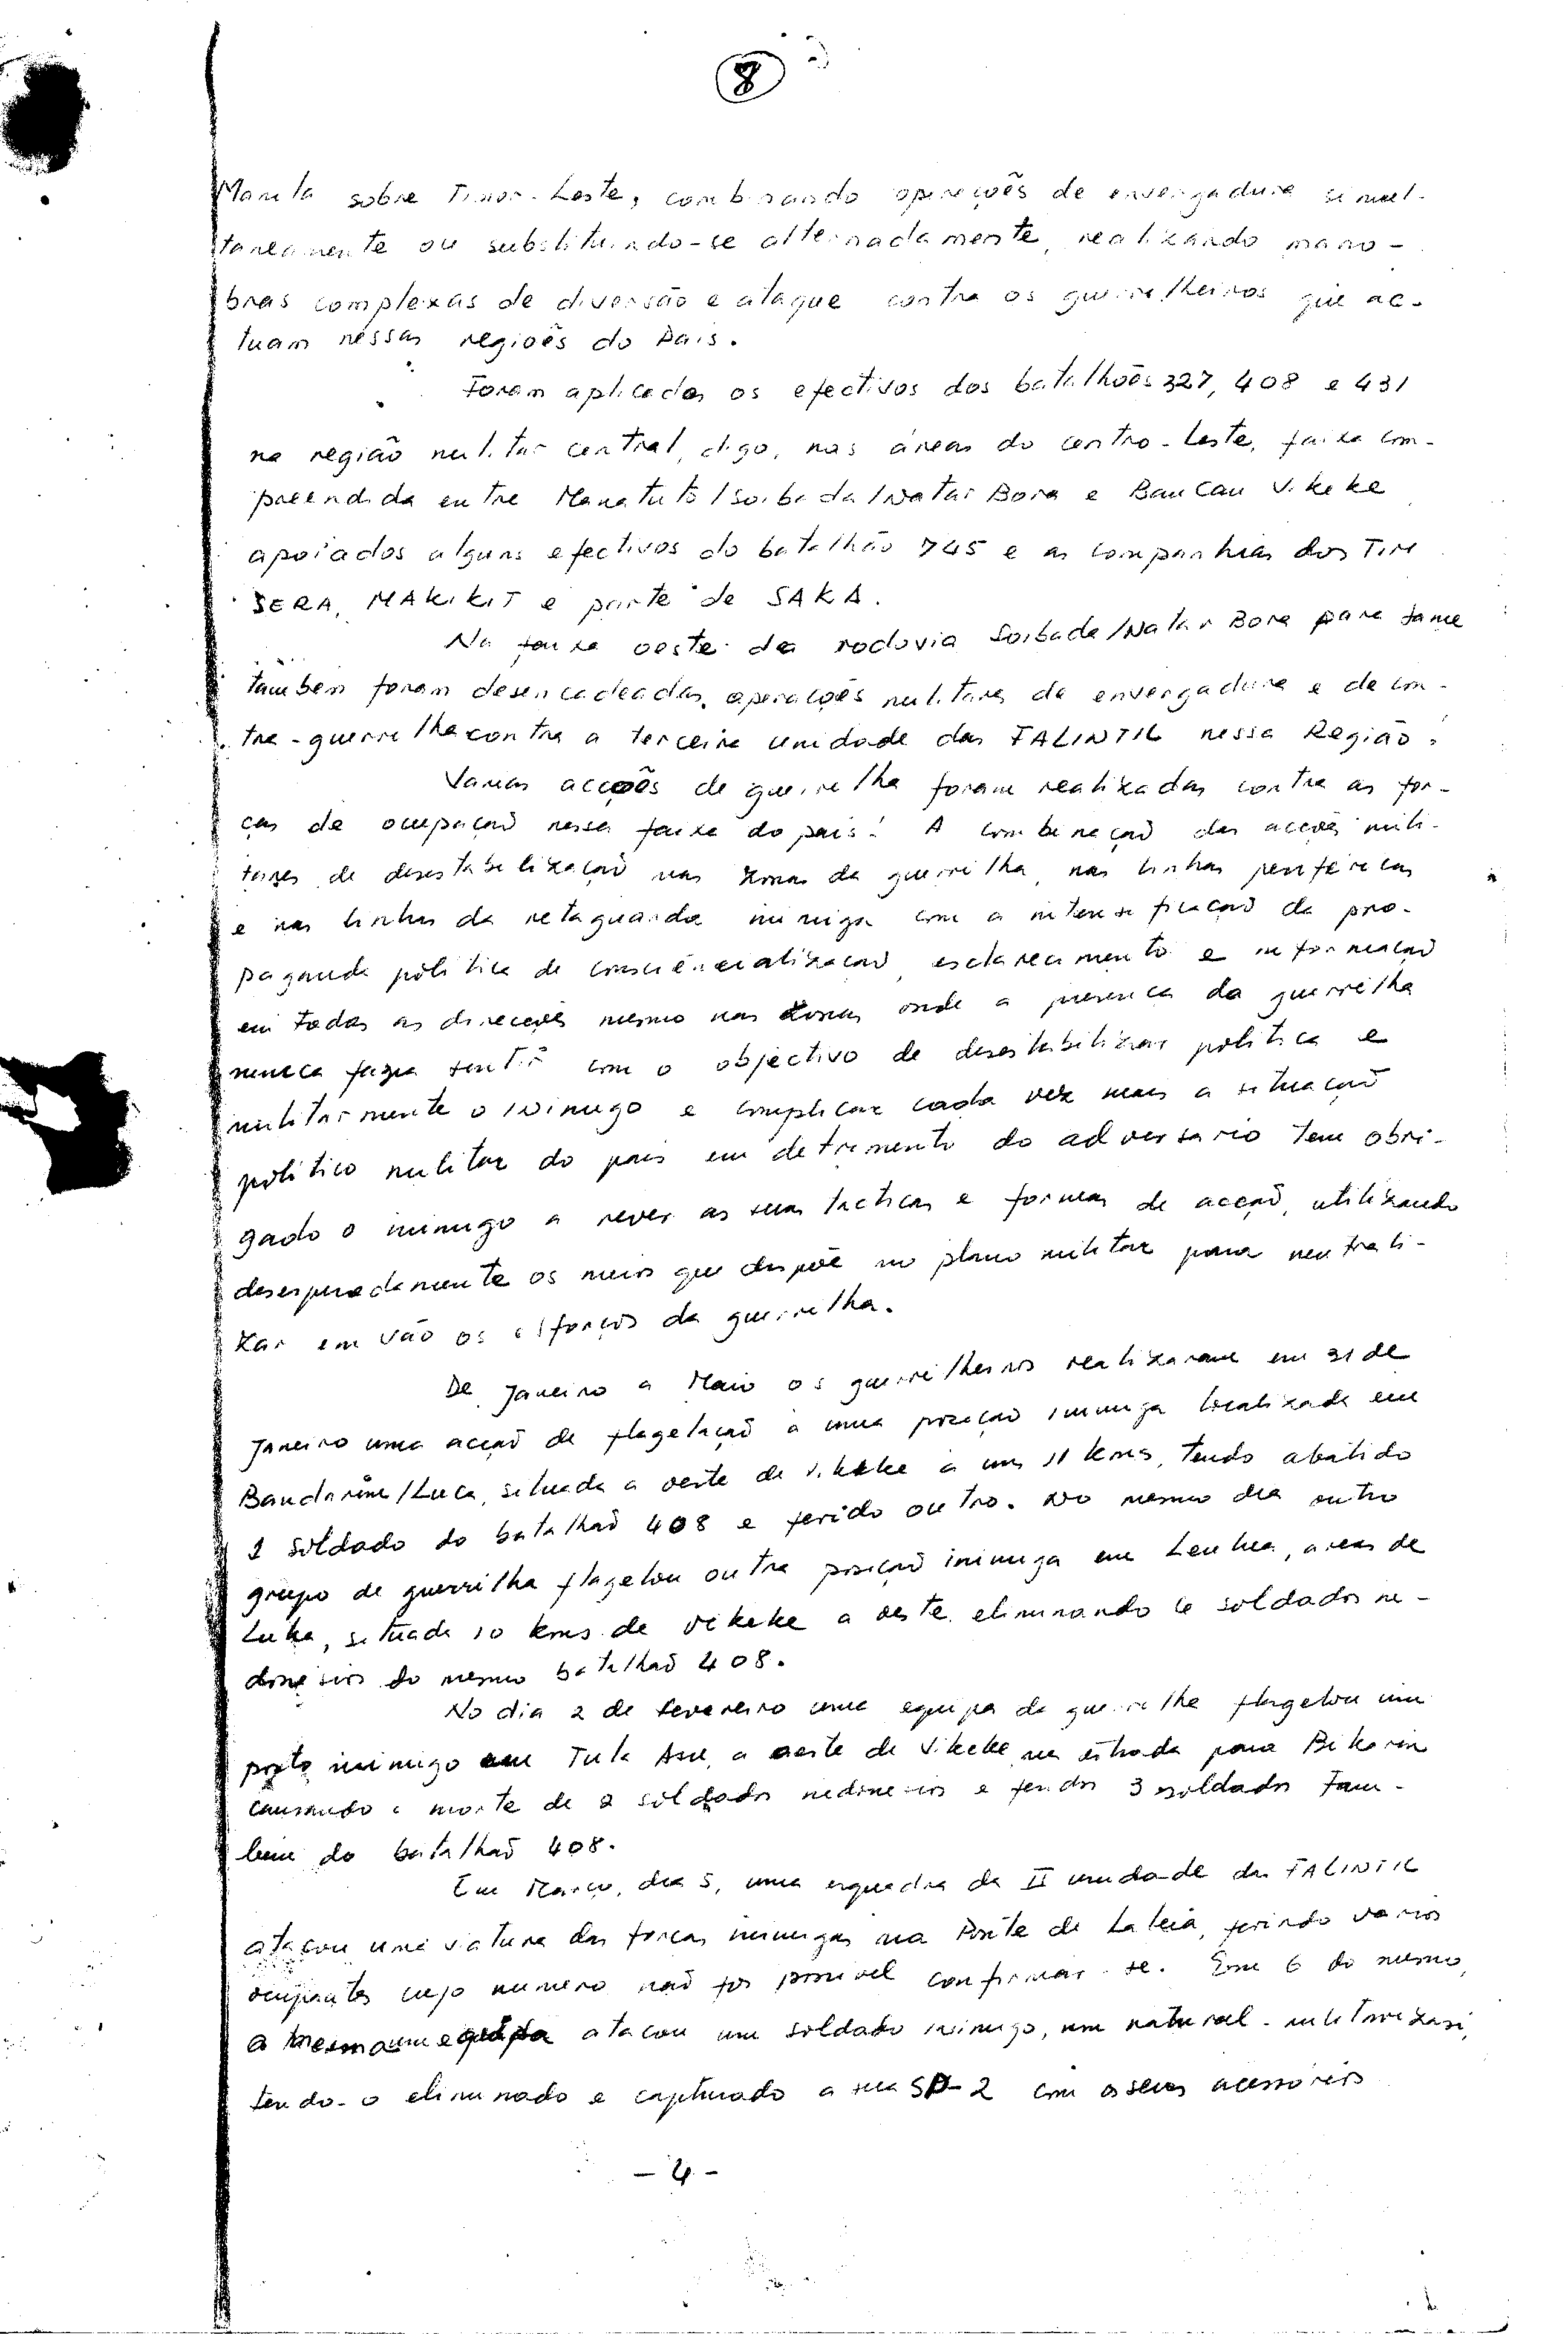 8
Manila sobre Timor-Leste, combinando operações de envergadura simul-
taneamente ou substituindo-se alternadamente, realizando mano-
bras complexas de diversão e ataque contra os guerrilheiros que ac-
tuam nessas regiões do País.
Foram aplicados os efectivos dos batalhões 327, 408 e 431
na região militar central, digo, nas áreas do centro-Leste, faixa com-
preendida entre Manatuto/Soibada/Natar Bora e BauCau Vikeke
apoiados alguns efectivos do batalhão 745 e as companhias dos TIM
SERA, MAKIKIT e parte de SAKA.
Na faixa oeste da rodovia Soibada/Natar Bora para Same
também foram desencadeadas operações militares de envergadura e de con-
tra-guerrilha contra a terceira unidade das FALINTIL nessa Região.
Varias acções de guerrilha foram realizadas contra as for-
ças de ocupação nessa faixa do país. A combinação das acções mili-
tares de desestabilização nas zonas da guerrilha, nas linhas perifericas
e nas linhas da retaguarda inimiga com a intensificação da pro-
paganda politica de consciêncialização, esclarecimento e informação
em todas as direcções mesmo nas zonas onde a presença da guerrilha
nunca fazia sentir com o objectivo de desestabilizar politica e
militarmente o inimigo e complicar cada vez mais a situação
politico militar do pais em detrimento do adversario tem obri-
gado o inimigo a rever as suas tacticas e formas de acção, utilizando
desesperadamente os meios que dispõe no plano militar para neutrali-
zar em vão os esforços da guerrilha.
De Janeiro a Maio os guerrilheiros realizaram em 31 de
Janeiro uma acção de flagelação a uma posição inimiga localizada em
/Luca, situada a oeste de Vikeke a uns 11 kms, tendo abatido
1 soldado do batalhão 408 e ferido outro. No mesmo dia outro
grupo de guerrilha flagelou outra posição inimiga em areas de
Luka, situada 10 kms de Vikeke a oeste eliminando 6 soldados in-
donésios do mesmo batalhão 408.
No dia 2 de fevereiro uma equipa da guerrilha flagelou um
posto inimigo em Tula a oeste de Vikeke na estrada para Bikarin
causando a morte de 2 soldados indonésios e feridos 3 soldados tam-
bem do batalhão 408.
Em Março, dia 5, uma esquadra da II unidade das FALINTIL
atacou uma viatura das forças inimigas na Ponte de Laleia, ferindo varios
ocupantes cujo numero não foi possivel confirmar-se. Em 6 do mesmo,
a mesma equipa atacou um soldado inimigo, um natural
tendo-o eliminado e capturado a sua SP-2 com os seus acessórios
- 4 -